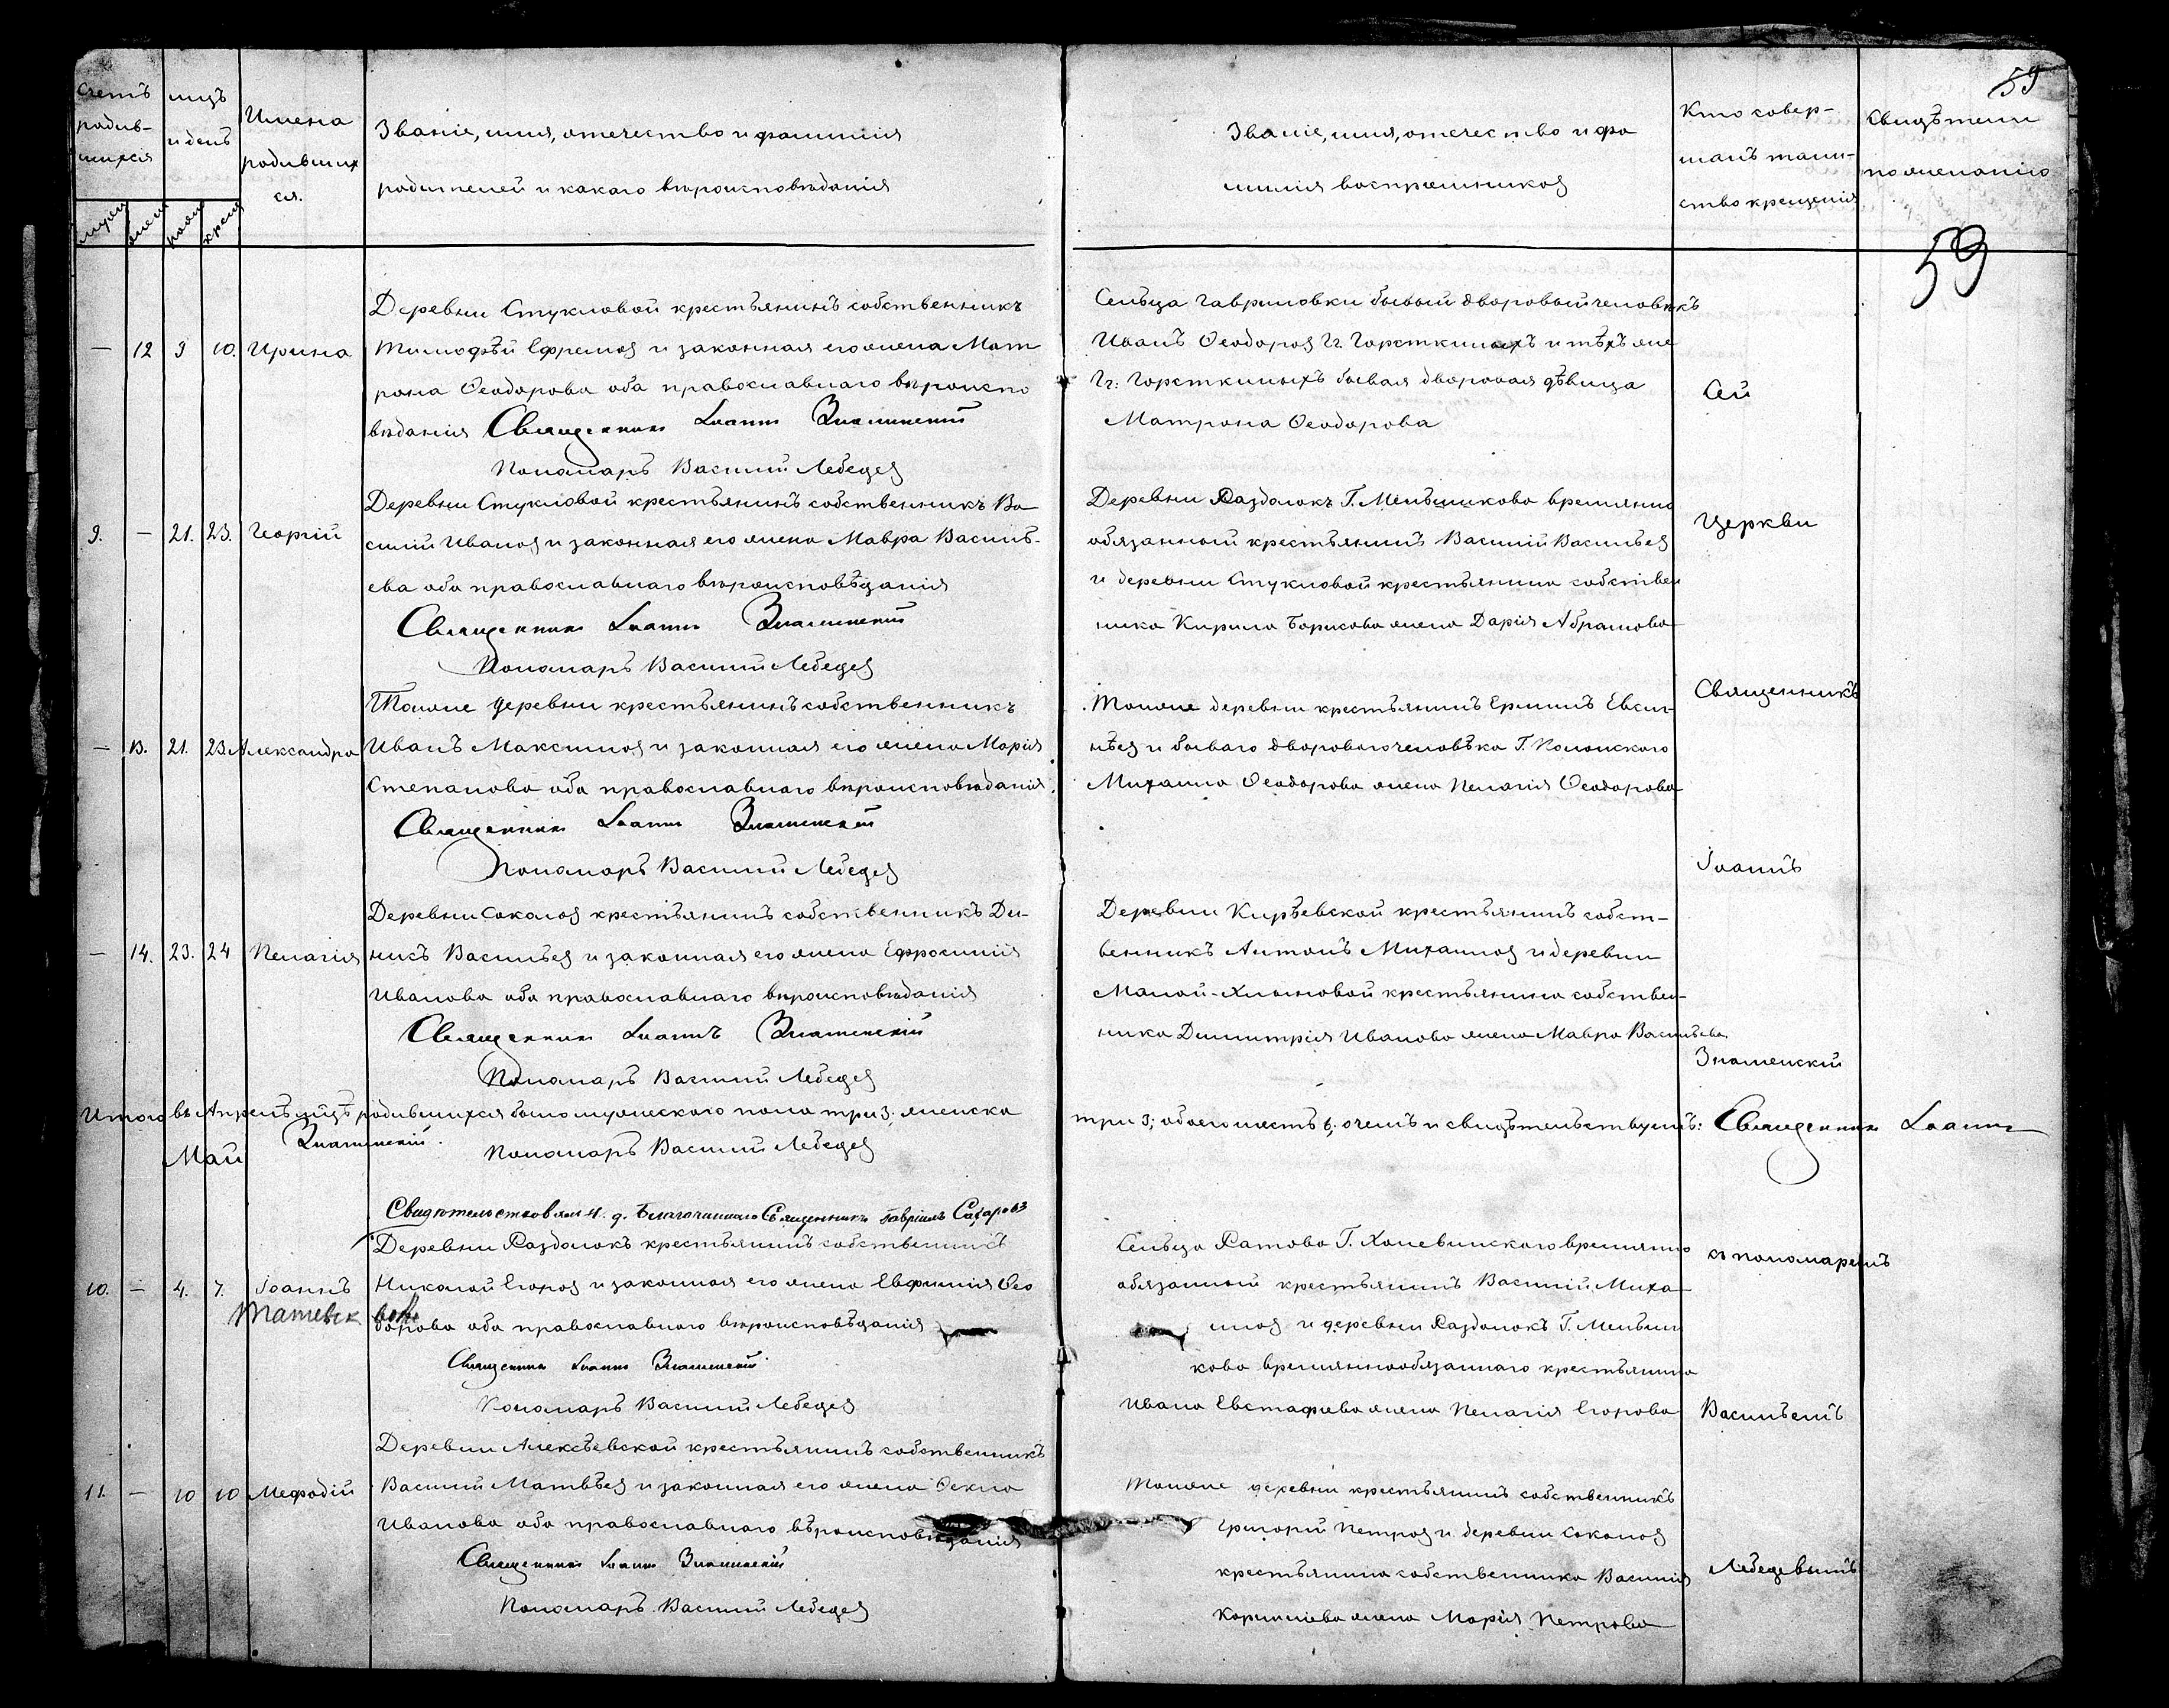 59
Счетъ родив-
шихся
мцъ
и день
Имена
родивших
ся.
Званіе, имя, отечество и фамилія
родителей и какого вѣроисповѣданія
Званіе, имя, отечество и фа
милія воспріемниковъ
Кто совер-
шалъ таин-
ство крещенія
Свидѣтели
по желанію
муж
жен
рожд
крещ
59
Деревни Стукловой крестьянинъ собственникъ
— 12 9 10. Ирина Тимофѣй Ефремов и законная его жена Мат
рона Ѳеодорова оба православнаго вѣроиспо
вѣданія Священникъ Іоаннъ Знаменскій
Пономарь Василій Лебедев
Сельца Гавриловки бывый дворовый человѣкъ
Иванъ Ѳеодоров Гг. Горсткиныхъ и тѣхъ же
Гг: Горсткиныхъ бывая дворовая дѣвица
Матрона Ѳеодорова
Сей
Деревни Стукловой крестьянинъ собственникъ Ва
9. — 21. 23. Георгій силій Иванов и законная его жена Мавра Василь-
ева оба православнаго вѣроисповѣданія
Священникъ Іоаннъ Знаменскій
Пономарь Василій Лебедев
Деревни Раздолокъ Г. Меньшикова временно
обязанный крестьянинъ Василій Васильев
и деревни Стукловой крестьянина собствен
ника Кирила Борисова жена Дарія Абрамова
Церкви
Тойже деревни крестьянинъ собственникъ
— 13. 21. 23 Александра Иванъ Максимов и законная его жена Марія
Степанова оба православнаго вѣроисповѣданія.
Священникъ Іоаннъ Знаменскій
Пономарь Василій Лебедев
Священникъ
Тойже деревни крестьянинъ Ермилъ Евсиг-
нѣев и бываго двороваго человѣка Г.
Михаила Ѳеодорова жена Пелагія Ѳеодорова
Іоаннъ
Деревни Соколов крестьянинъ собственникъ Ди-
— 14. 23. 24 Пелагія нисъ Васильев и законная его жена Ефросинія
Иванова оба православнаго вѣроисповѣданія
Священникъ Іоаннъ Знаменскій
Пономарь Василій Лебедев
Деревни Кирѣевской крестьянинъ собст-
венникъ Антонъ Михайлов и деревни
Малой-Хлыновой крестьянина собствен-
ника Димитрія Иванова жена Мавра Васильева
Знаменскій
Итого въ Апрелѣ мцѣ родившихся было мужескаго пола три 3; женска
три 3; обоего шесть 6; о чемъ и свидѣтельствуемъ: Священникъ Іоаннъ
Знаменскій.
Пономарь Василій Лебедев
Май
Свидѣтельствовалъ И. д. Благочиннаго Священникъ Гавріилъ Сахаровъ
Деревни Раздолокъ крестьянинъ собственникъ
10. — 4. 7. Іоаннъ Николай Егоров и законная его жена Евфимія Ѳео
дорова оба православнаго вѣроисповѣданія
Священникъ Іоаннъ Знаменскій
Пономарь Василій Лебедев
Сельца Ратова Г. временно
обязанный крестьянинъ Василій Миха
йлов и деревни Раздолокъ Г. Меньши
кова временнообязаннаго крестьянина
Ивана Евстафиева жена Пелагія Егорова
съ пономаремъ
Васильемъ
Деревни Алексѣевской крестьянинъ собственникъ
11. — 10 10 Мефодій Василій Матвѣев и законная его жена Ѳекла
Иванова оба православнаго вѣроисповѣданія
Священникъ Іоаннъ Знаменскій
Пономарь Василій Лебедев
Тойже деревни крестьянинъ собственникъ
Григорій Петров и деревни Соколов
крестьянина собственника Василія
Корнилиева жена Марія Петрова
Лебедевымъ